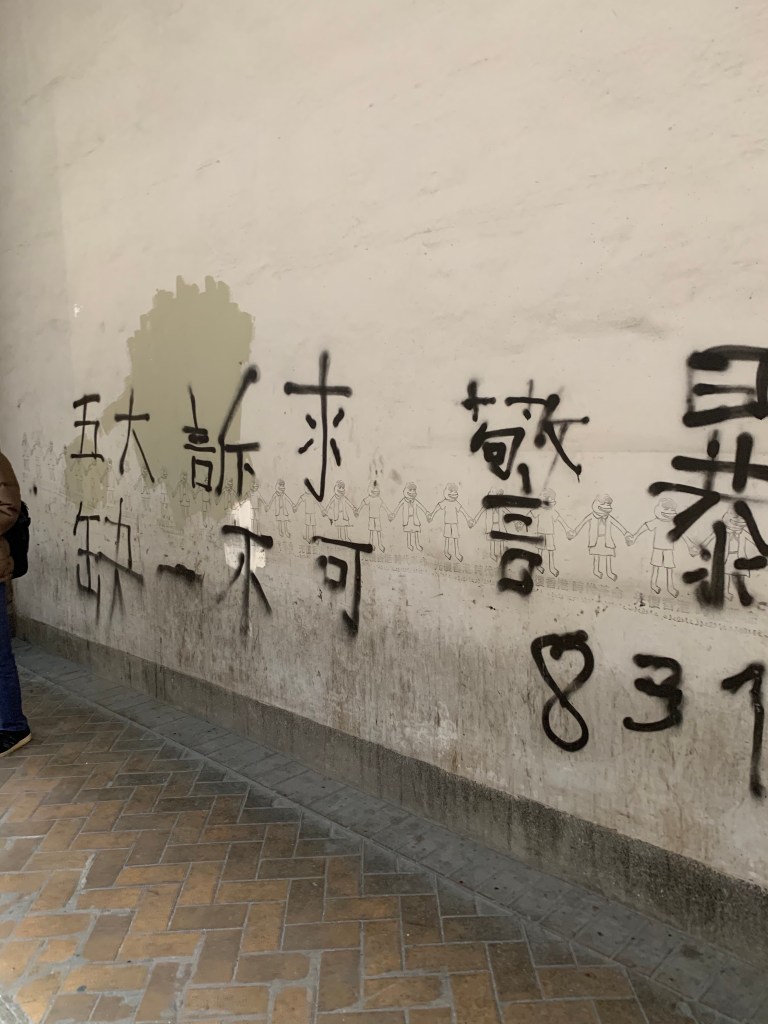 五大訴求
缺一不可
警暴
831